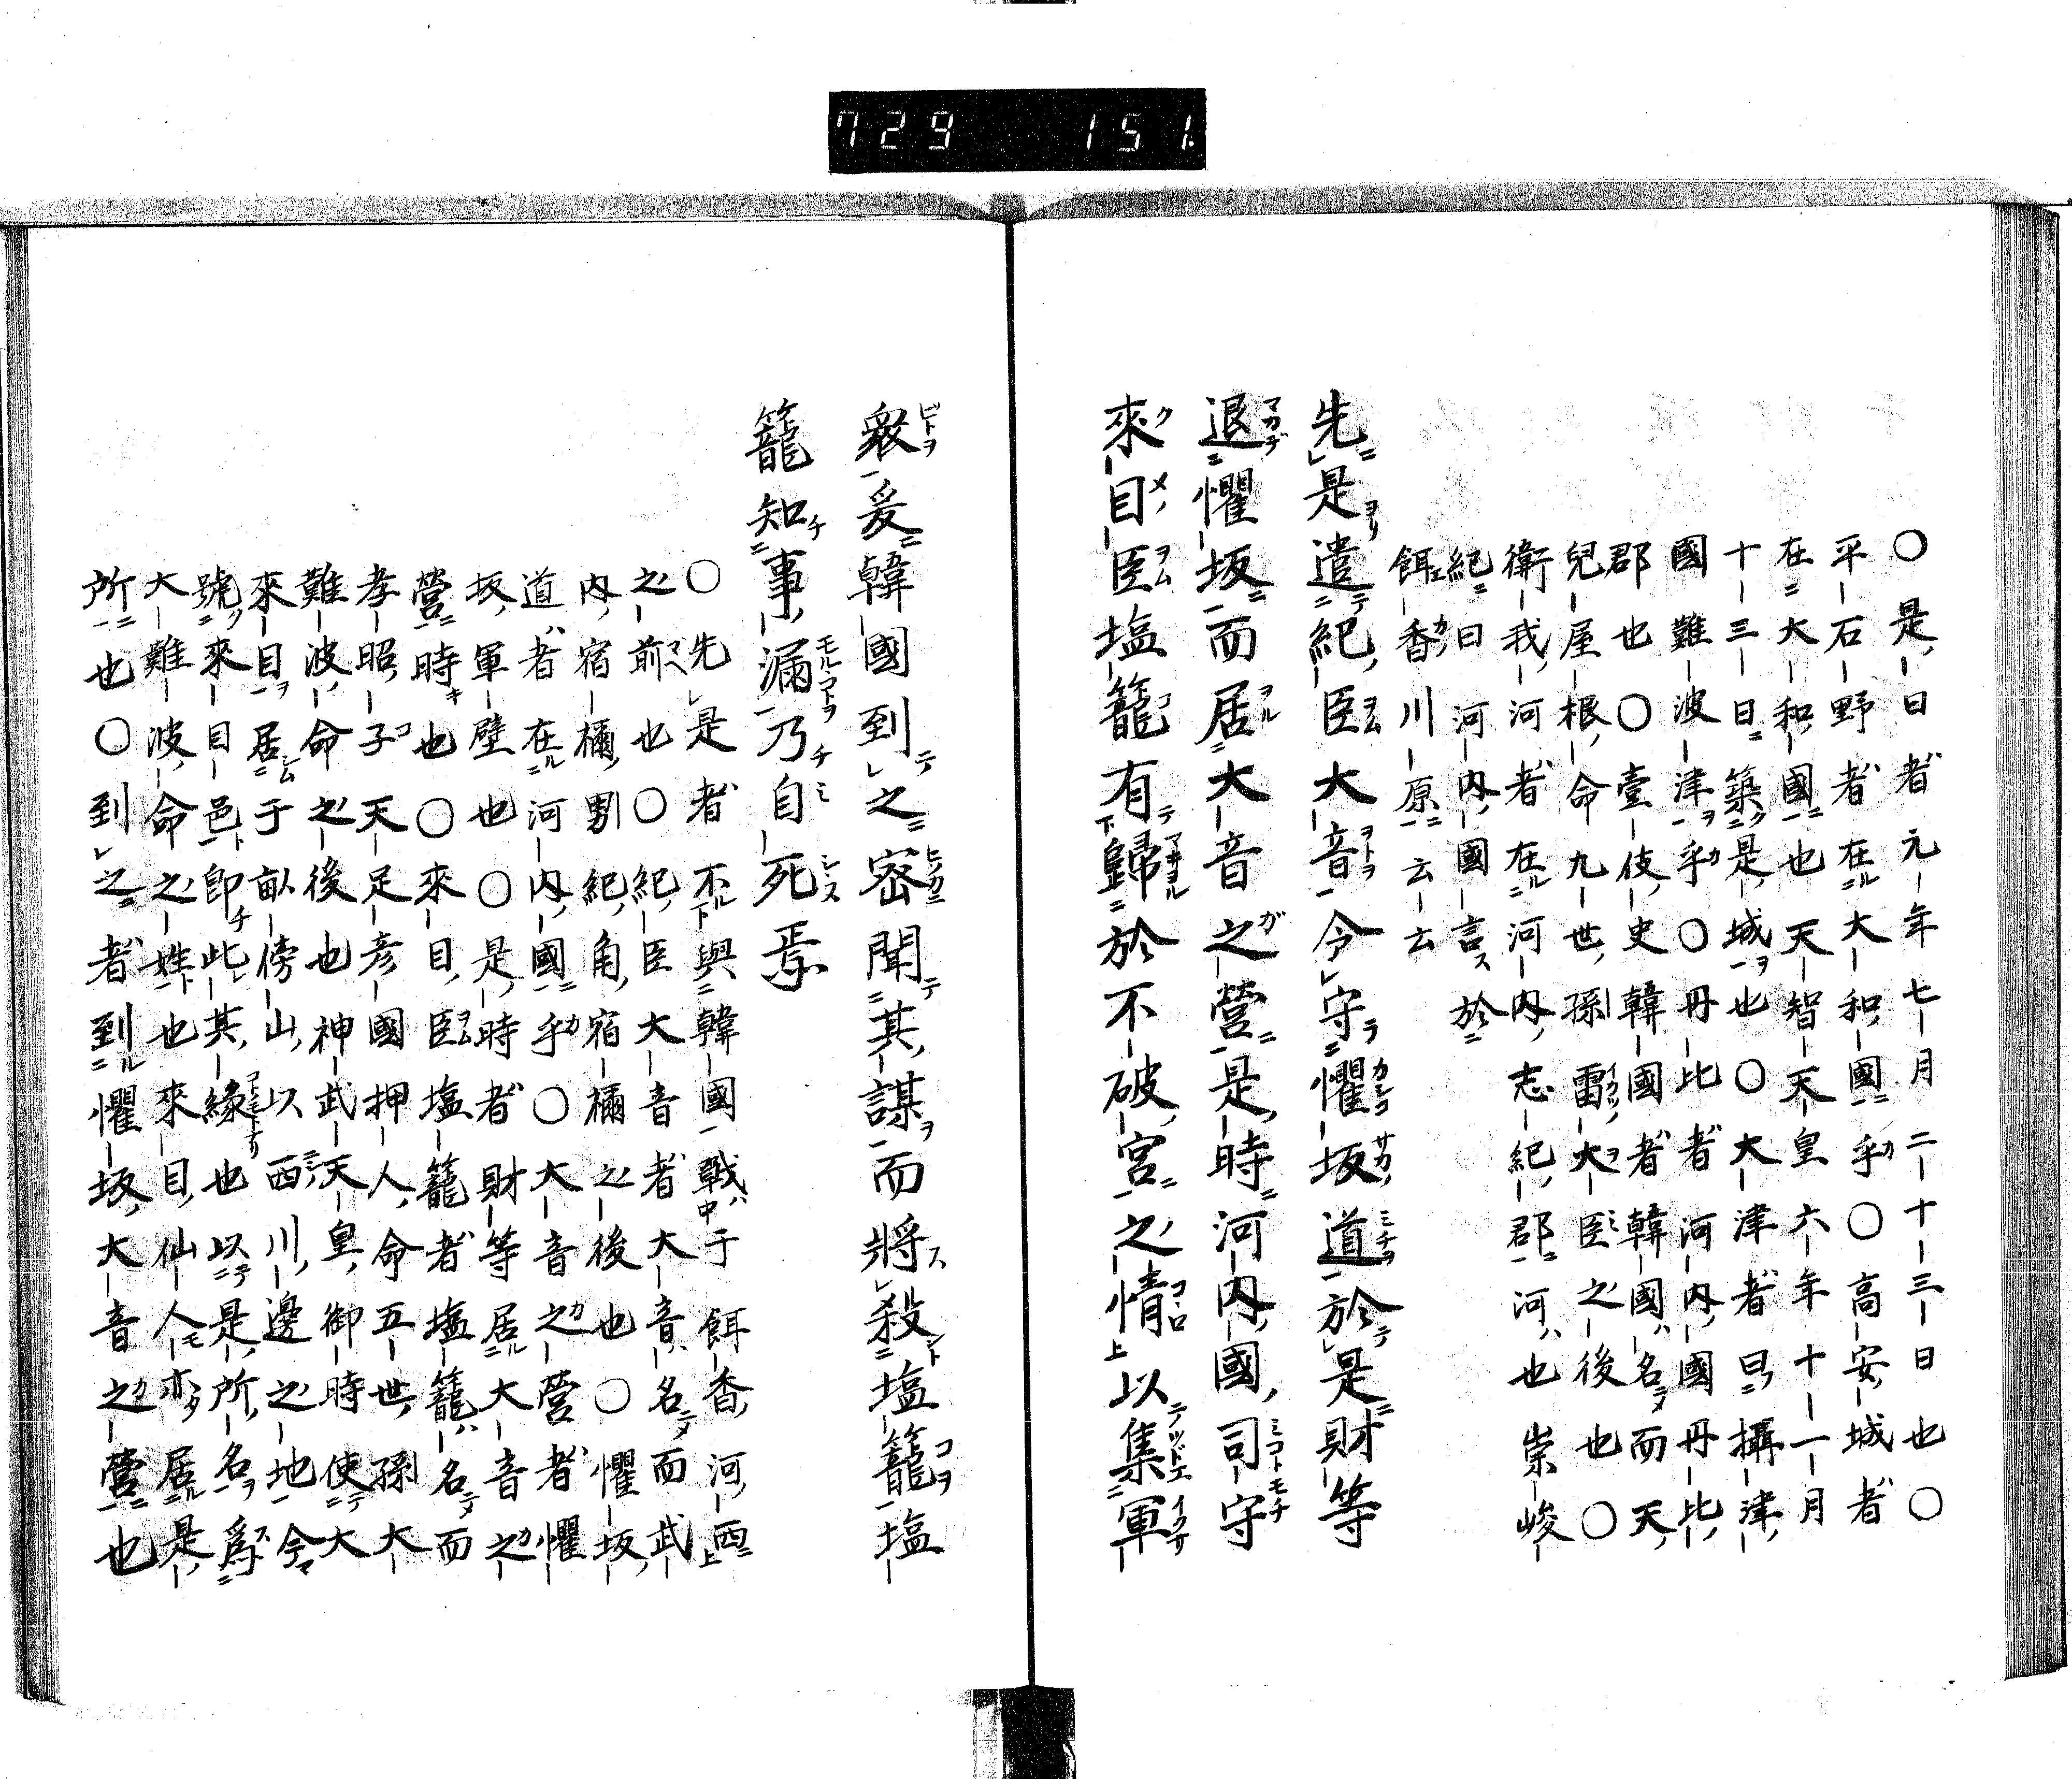 729 151.
〇是日者元年七月二十三日也〇
平石野者在大和國乎〇高安城者
在大和國也天智天皇六年十一月
十三日築是城也〇大津者曰攝津
國難波津乎〇丹比者河内國丹比
郡也〇壹伎史韓國者韓國名而天
兒屋根命九世孫雷大臣之後也〇
衛我河者在河内志紀郡河也崇峻
紀曰河内國言於
餌香川原云云
先是遣紀臣大音令守懼坂道於是財等
退懼坂而居大音之營是時河内國司守
來目臣塩籠有歸於不破宮之情以集軍
衆爰韓國到之密聞其謀而將殺塩籠塩
籠知事漏乃自死焉
〇先是者不與韓國戰于餌香河西
之前也〇紀臣大音者大音名而武
内宿禰男紀角宿禰之後也〇懼坂
道者在河内國乎〇大音之營者懼
坂軍壁也〇是時者財等居大音之
營時也〇來目臣塩籠者塩籠名而
孝昭子天足彦國押人命五世孫大
難波命之後也神武天皇御時使大
來目居于畝傍山以西川邊之地今
號來目邑即此其緣也以是所名爲
大難波命之姓也來目仙人亦居是
所也〇到之者到懼坂大音之營也